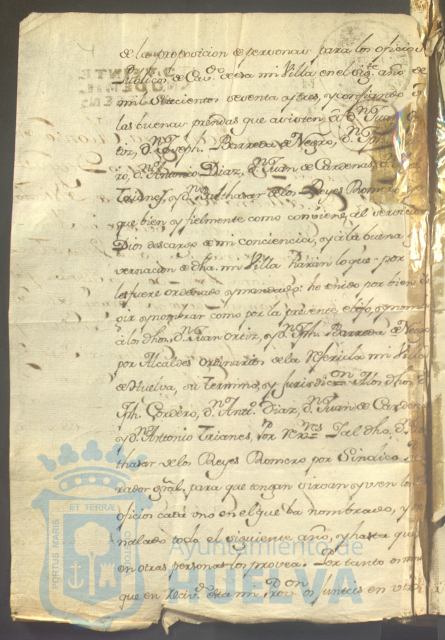 de la proposicion de personas para los oficios
publicos de Cav.do de esa mi Villa en el sig.te año de
mil Setecientos setenta y tres, y confiando
las buenas prendas que asisten a D.n Juan
tiz, D.n Joseph Barreda de Negro, D.n Jph
ro, D.n Antonio Diaz, D.n Juan de Cardenas,
Trianes, y D.n Balthasar de los Reyes Romero
que bien, y fielmente como conviene, al servicio
Dios descargo de mi conciencia, y a la buena
vernacion de dha. mi Villa haran lo que por
les fuere ordenado y mandado: he tenido por bien
gir y nombrar como por la presente elijo, y nombro
a los dhos, D.n Juan Ortiz, y D.n Jph. Barreda de Negro
por Alcaldes ordinarios de la referida mi Villa
de Huelva, su termino, y jurisdic.on A los dhos. D.n
Jph. Cordero, D.n Ant.o Diaz, D.n Juan de Carden
y D.n Antonio Trianes, por Rex.res Y al dho. D.n
thasar de los Reyes Romero por Sindico
rador gral, para que tengan sirvan y usen los
oficios cada uno en el que ba nombrado, y
ñalado todo el siguiente año, y hasta que
en otras personas los provea. Por tanto
que en Reciv.do esta mi
PORTUS MARIS ET TERRÆ
Ayuntamiento de
HUELVA